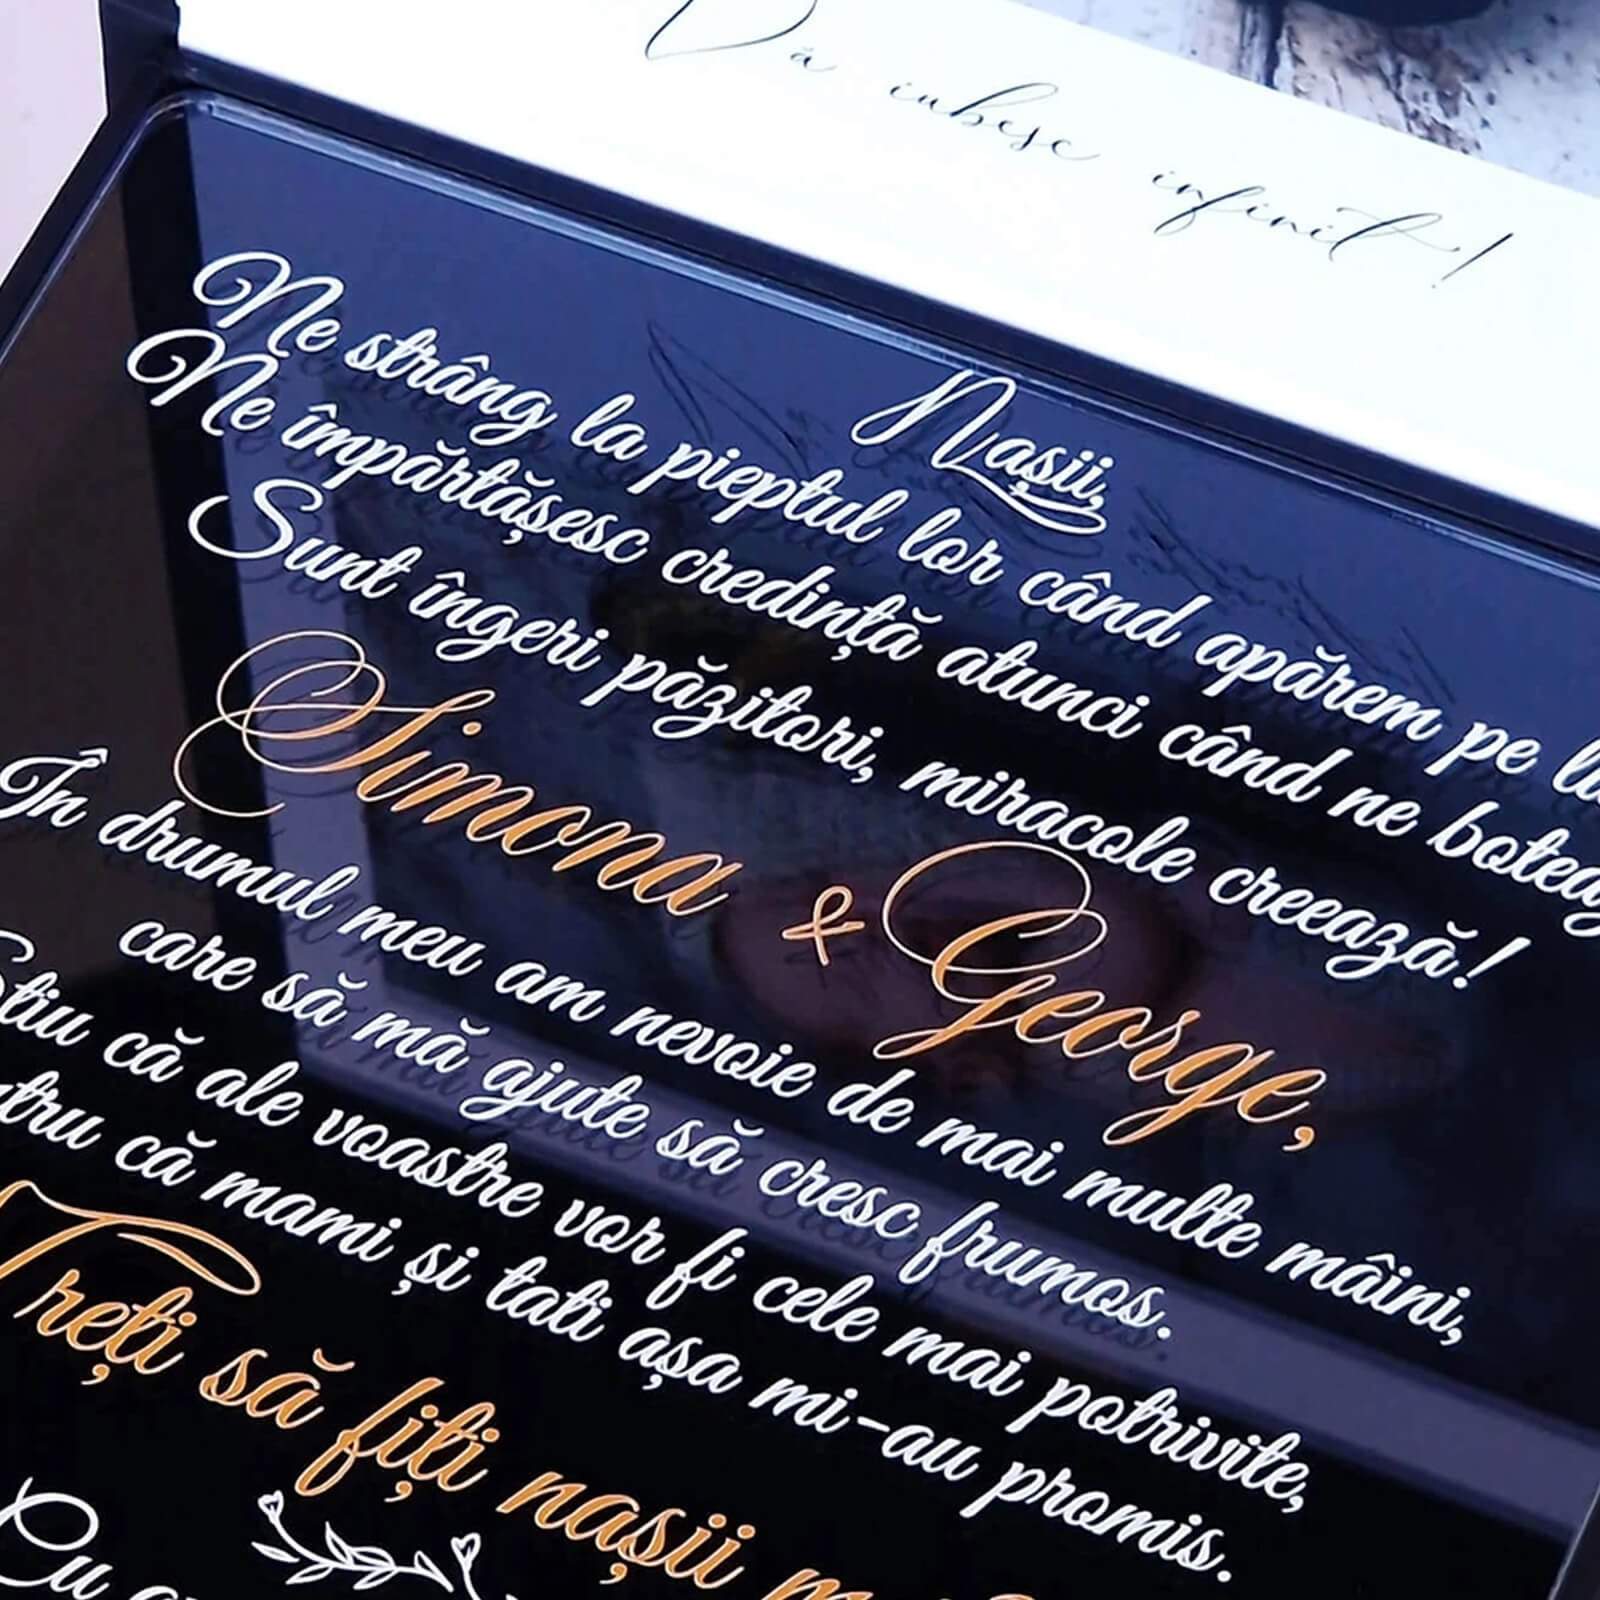 Vă iubesc infinit!
Nașii,
Ne strâng la pieptul lor când apărem pe
Ne împărtășesc credință atunci când ne
Sunt îngeri păzitori, miracole creează!
Simona & George,
În drumul meu am nevoie de mai multe mâini,
care să mă ajute să cresc frumos.
Știu că ale voastre vor fi cele mai potrivite,
că mami și tati așa mi-au promis.
Vreți să fiți nașii
Cu